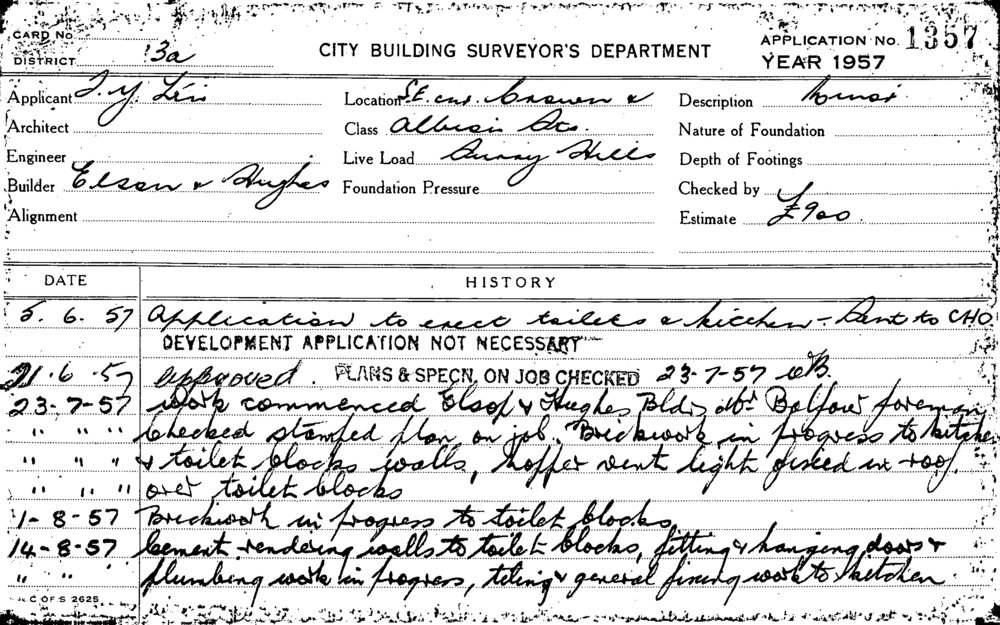 CARD No
DISTRICT 3a
CITY BUILDING SURVEYOR'S DEPARTMENT
APPLICATION No. 1357
YEAR 1957
Applicant T. Y.
Location S.E. cnr. Crown &
Description House
Architect
Class Albion Sts.
Nature of Foundation
Engineer
Live Load Surry Hills
Depth of Footings
Builder Elson & Hughes
Foundation Pressure
Checked by
Alignment
Estimate £900
DATE HISTORY
5. 6. 57 Application to erect toilets & kitchen - Sent to CHO
DEVELOPMENT APPLICATION NOT NECESSARY
21.6.57 approved. PLANS & SPECN. ON JOB CHECKED 23-7-57
23-7-57 work commenced & Hughes Bldrs Mr Balfour foreman
" " " Checked stamped plan on job. Brickwork in progress to kitchen
" " " & toilet blocks walls, hopper vent light fixed in roof
" " " over toilet blocks
1-8-57 Brickwork in progress to toilet blocks
14-8-57 Cement rendering walls to toilet blocks, fitting & hanging doors &
" " " plumbing work in progress, tiling & general fixing work to kitchen
C OF S 2625